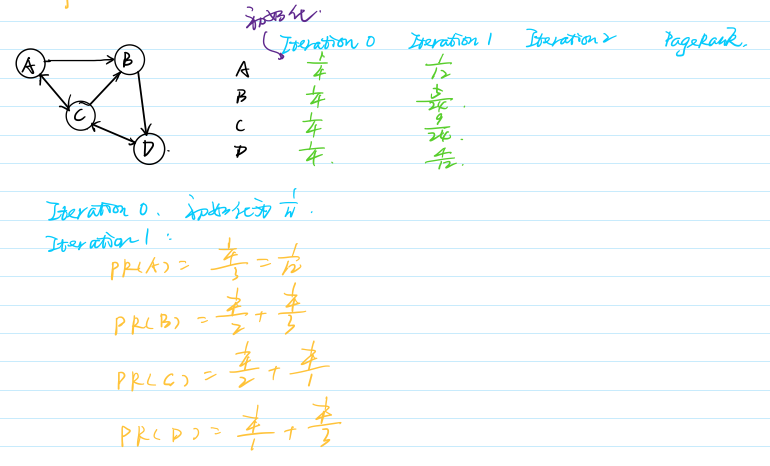 初始化.
Iteration 0 Iteration 1 Iteration 2 PageRank.
A B
C
D
A 1/4 1/12
B 1/4 5/24
C 1/4 9/24
D 1/4 4/12
Iteration 0. 初始化为 1/4.
Iteration 1:
PR(A) = (1/4)/3 = 1/12
PR(B) = (1/4)/2 + (1/4)/3
PR(C) = (1/4)/2 + (1/4)/1
PR(D) = (1/4)/1 + (1/4)/3